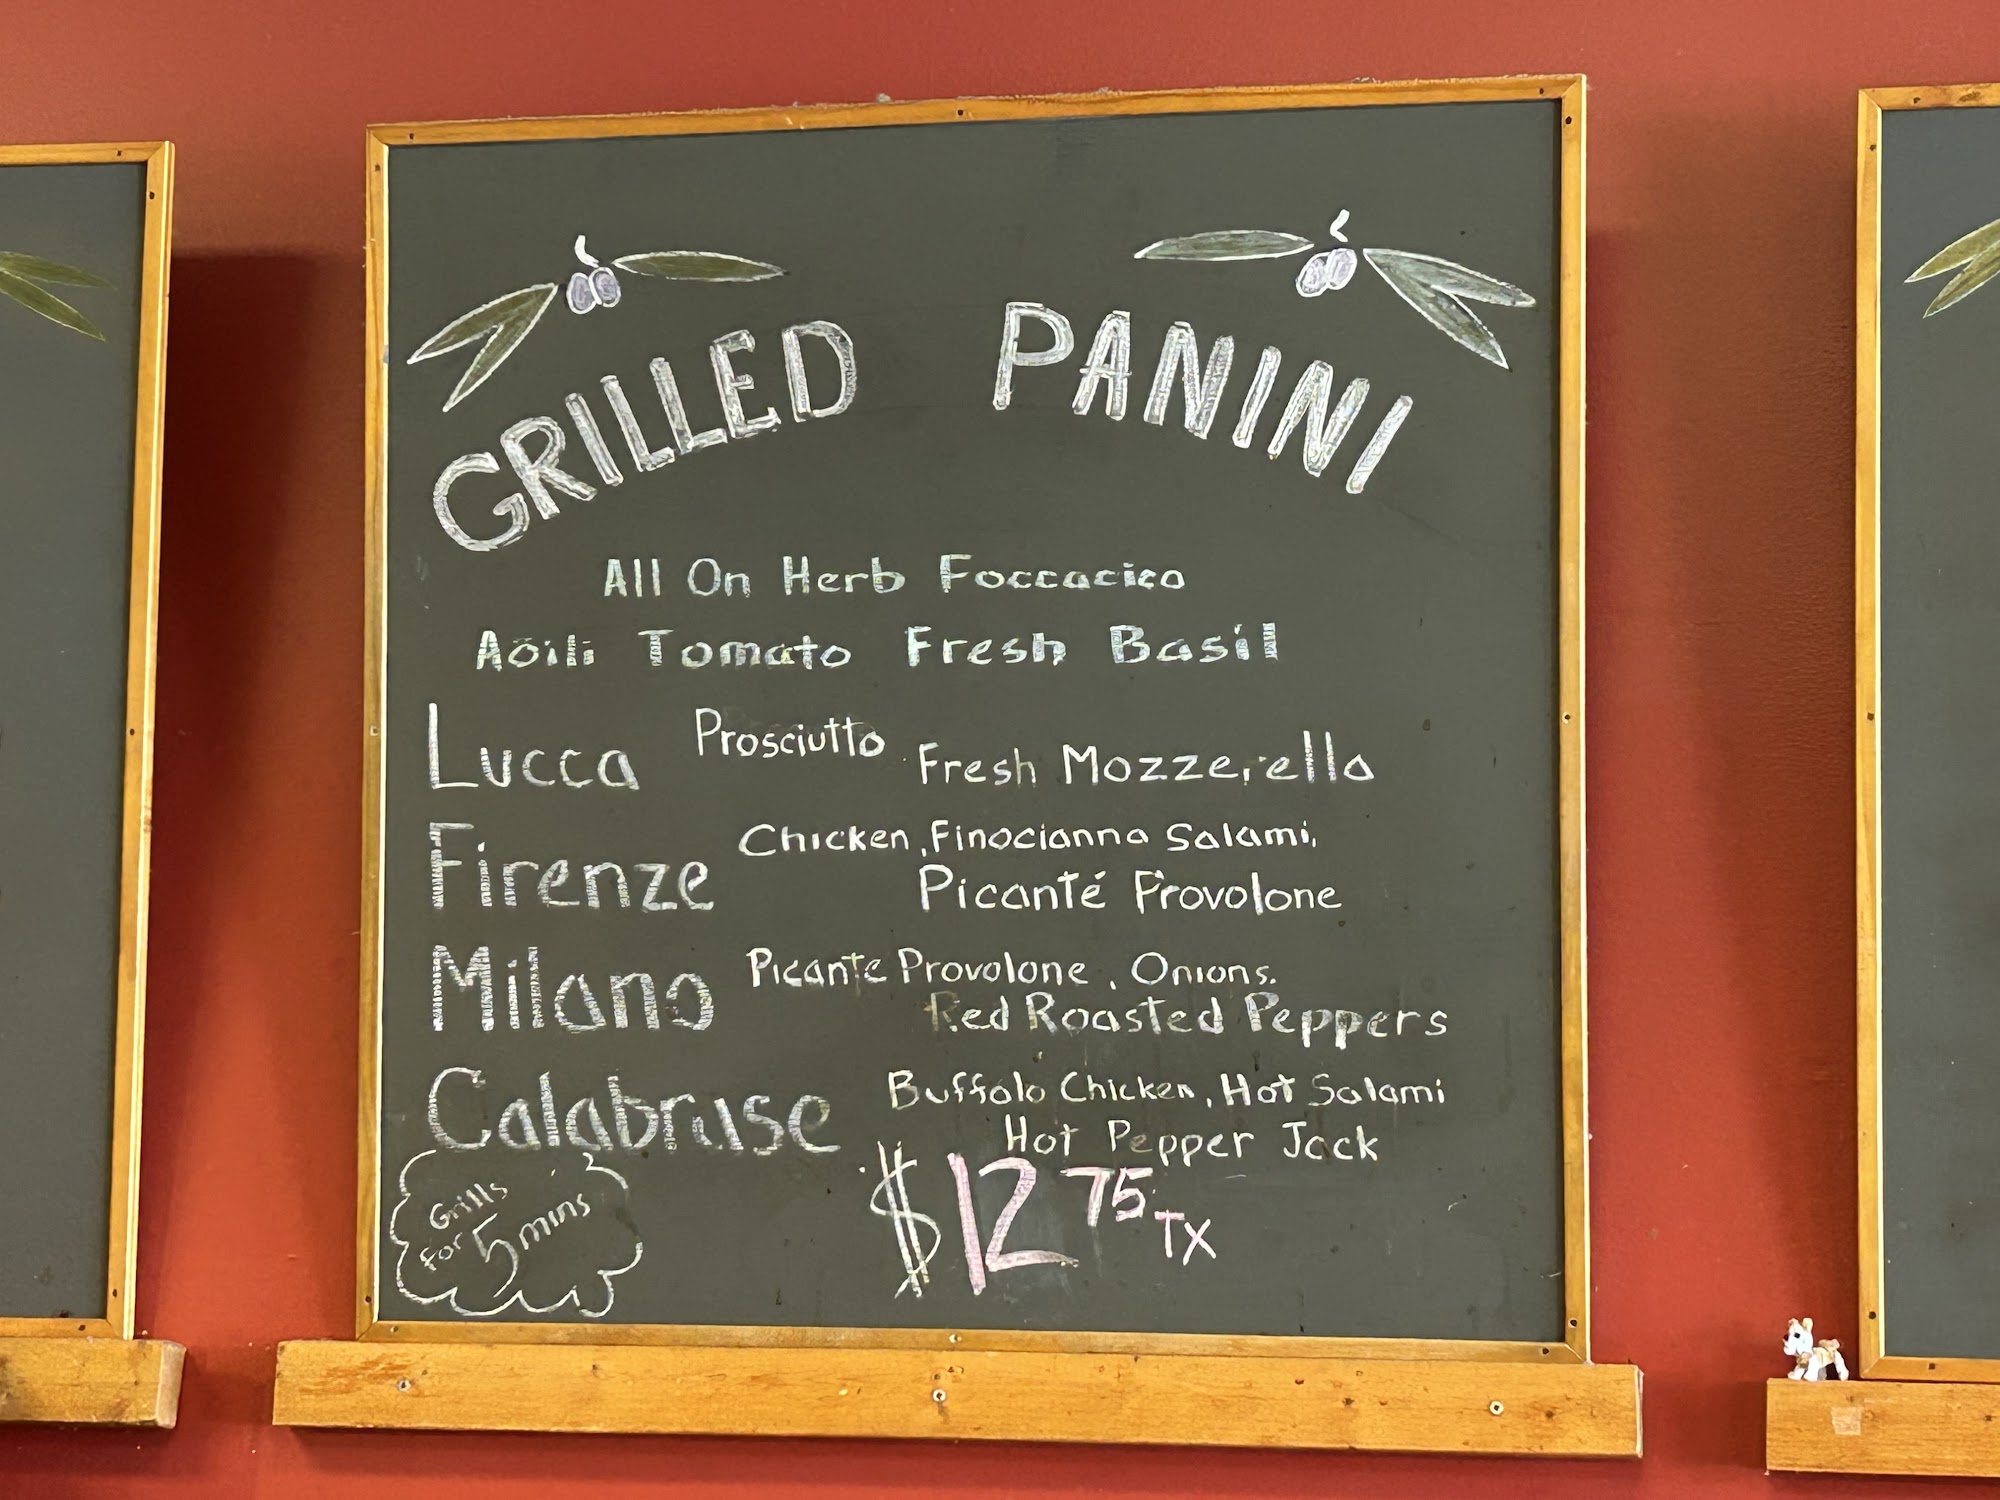 GRILLED PANINI
All On Herb Foccacica
Aoili Tomato Fresh Basil
Lucca Prosciutto Fresh Mozzerella
Firenze Chicken, Finocianna Salami,
Picanté Provolone
Milano Picante Provolone, Onions,
Red Roasted Peppers
Calabruse Buffalo Chicken, Hot Salami
Hot Pepper Jack
Grills
for 5 mins
$12 75 TX